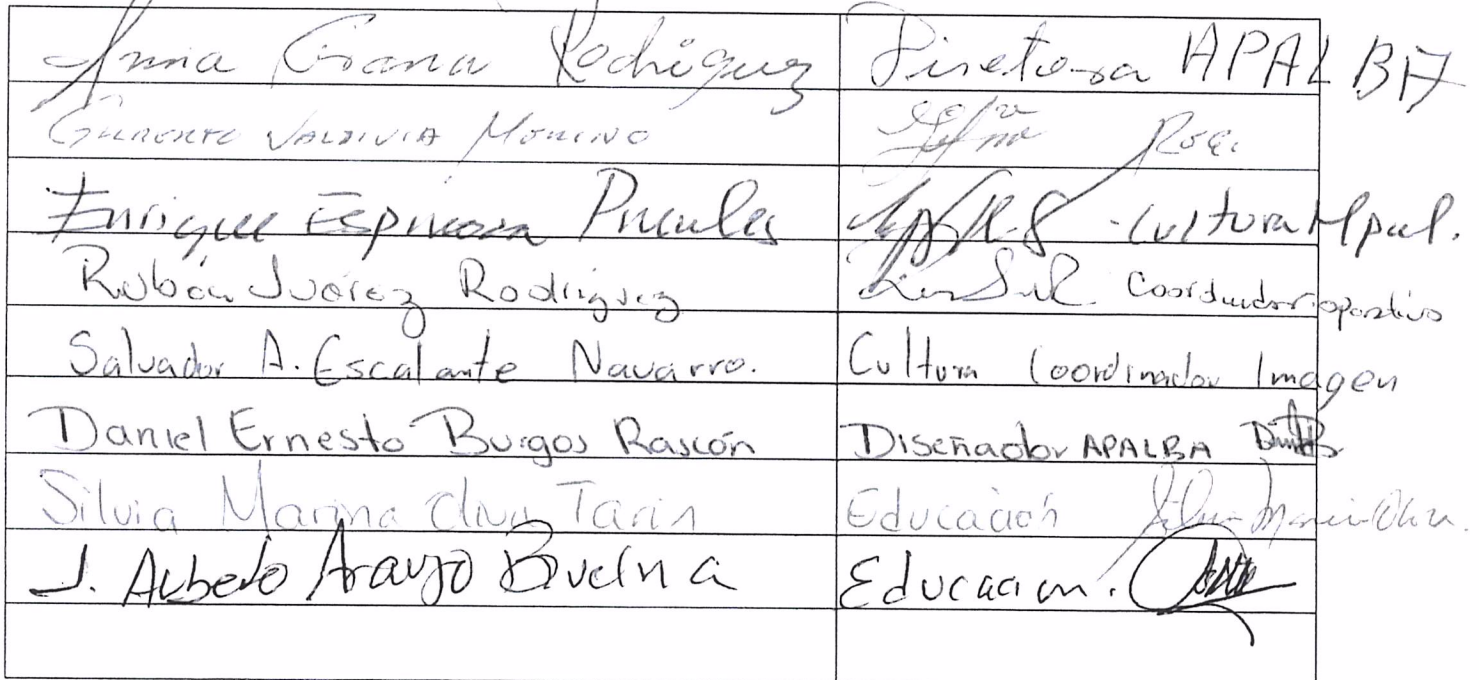 Rodriguez Diretora APALBA
VALDIVIA MORENO
Enrique Espinoza - Cultura Mpal.
Rubén Juárez Rodriguez Coordinador operativo
Salvador A. Escalante Navarro. Cultura Coordinador Imagen
Daniel Ernesto Burgos Rascón Diseñador APALBA
Silvia Marina Oliva Tarin Educación
J. Alberto Araujo Buelna Educacion.